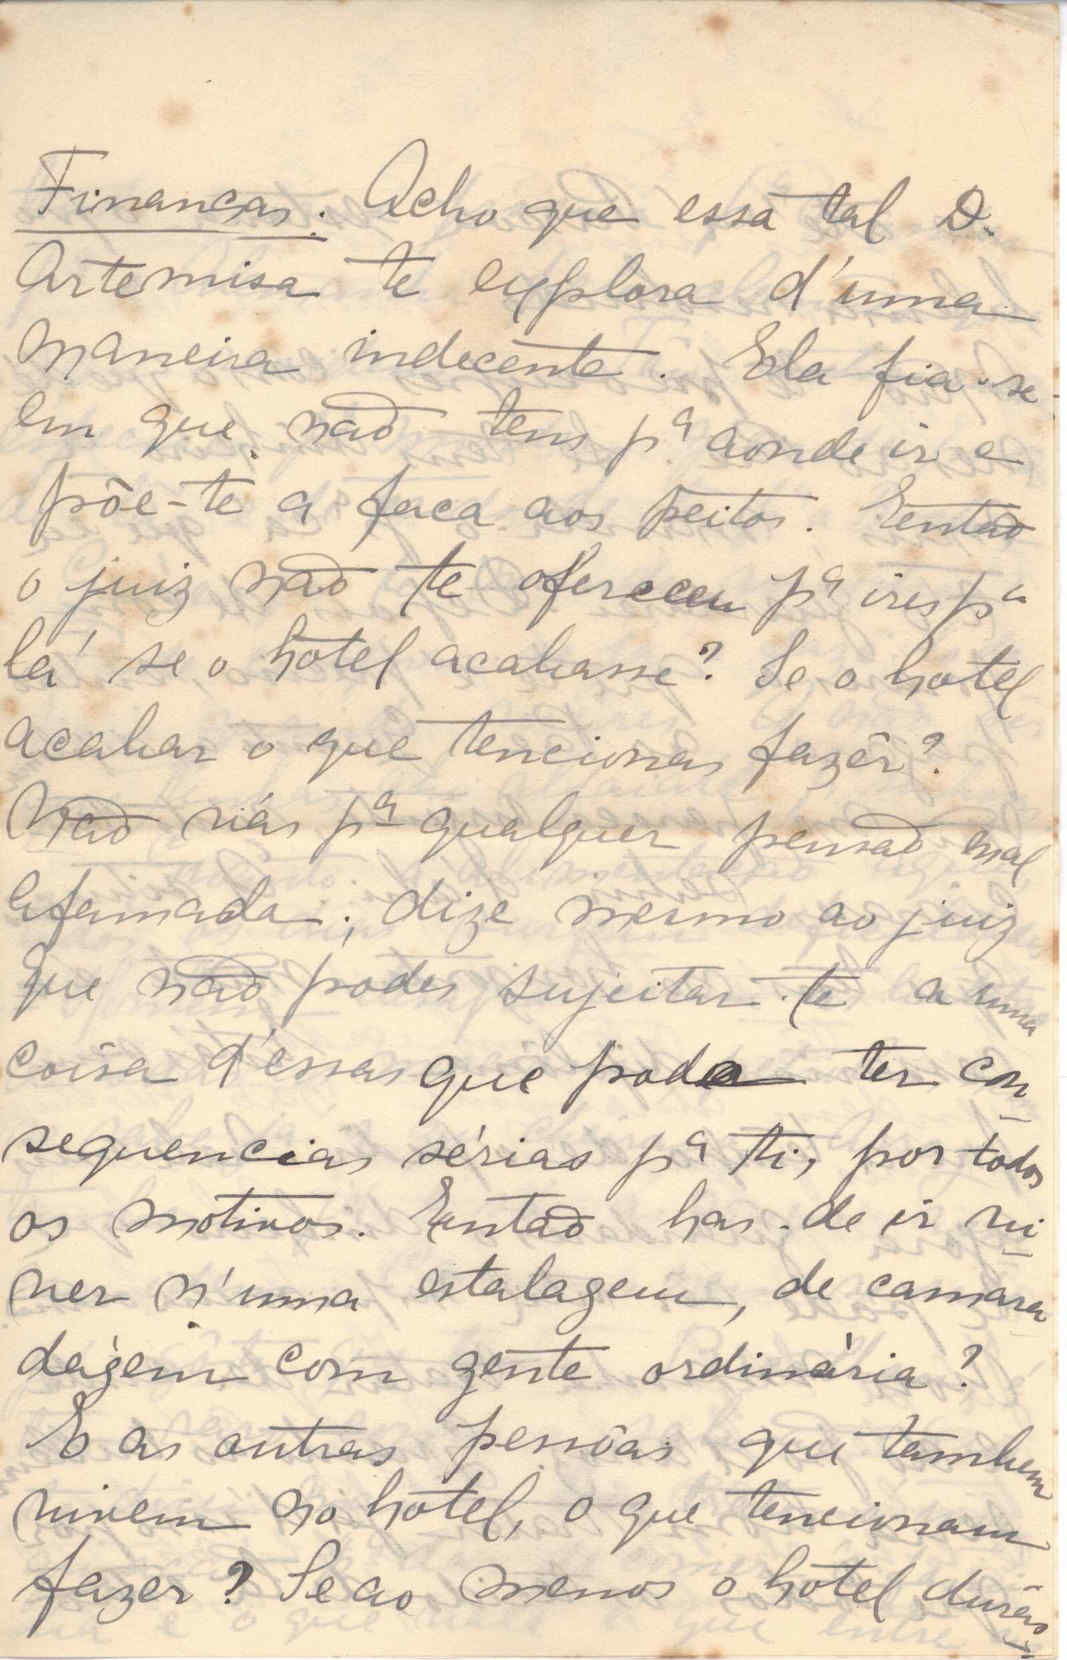 Finanças. Acho que essa tal D.
Artemisa te explora d'uma
maneira indecente. Ela fia-se
em que não tens pª aonde ir e
põe-te a faca aos peitos. Então
o juiz não te ofereceu pª ires pª
lá se o hotel acabasse? Se o hotel
acabar o que tencionas fazêr?
Não vás pª qualquer pensão mal
afamada; dize mesmo ao juiz
que não podes sujeitar-te a uma
coisa d'essas que poda ter con-
sequencias sérias pª ti, por todos
os motivos. Então has-de ir vi-
ver n'uma estalagem, de camara
dagem com gente ordinária?
E as outras pessôas que tambem
vivem no hotel, o que tencionam
fazer? Se ao menos o hotel durás